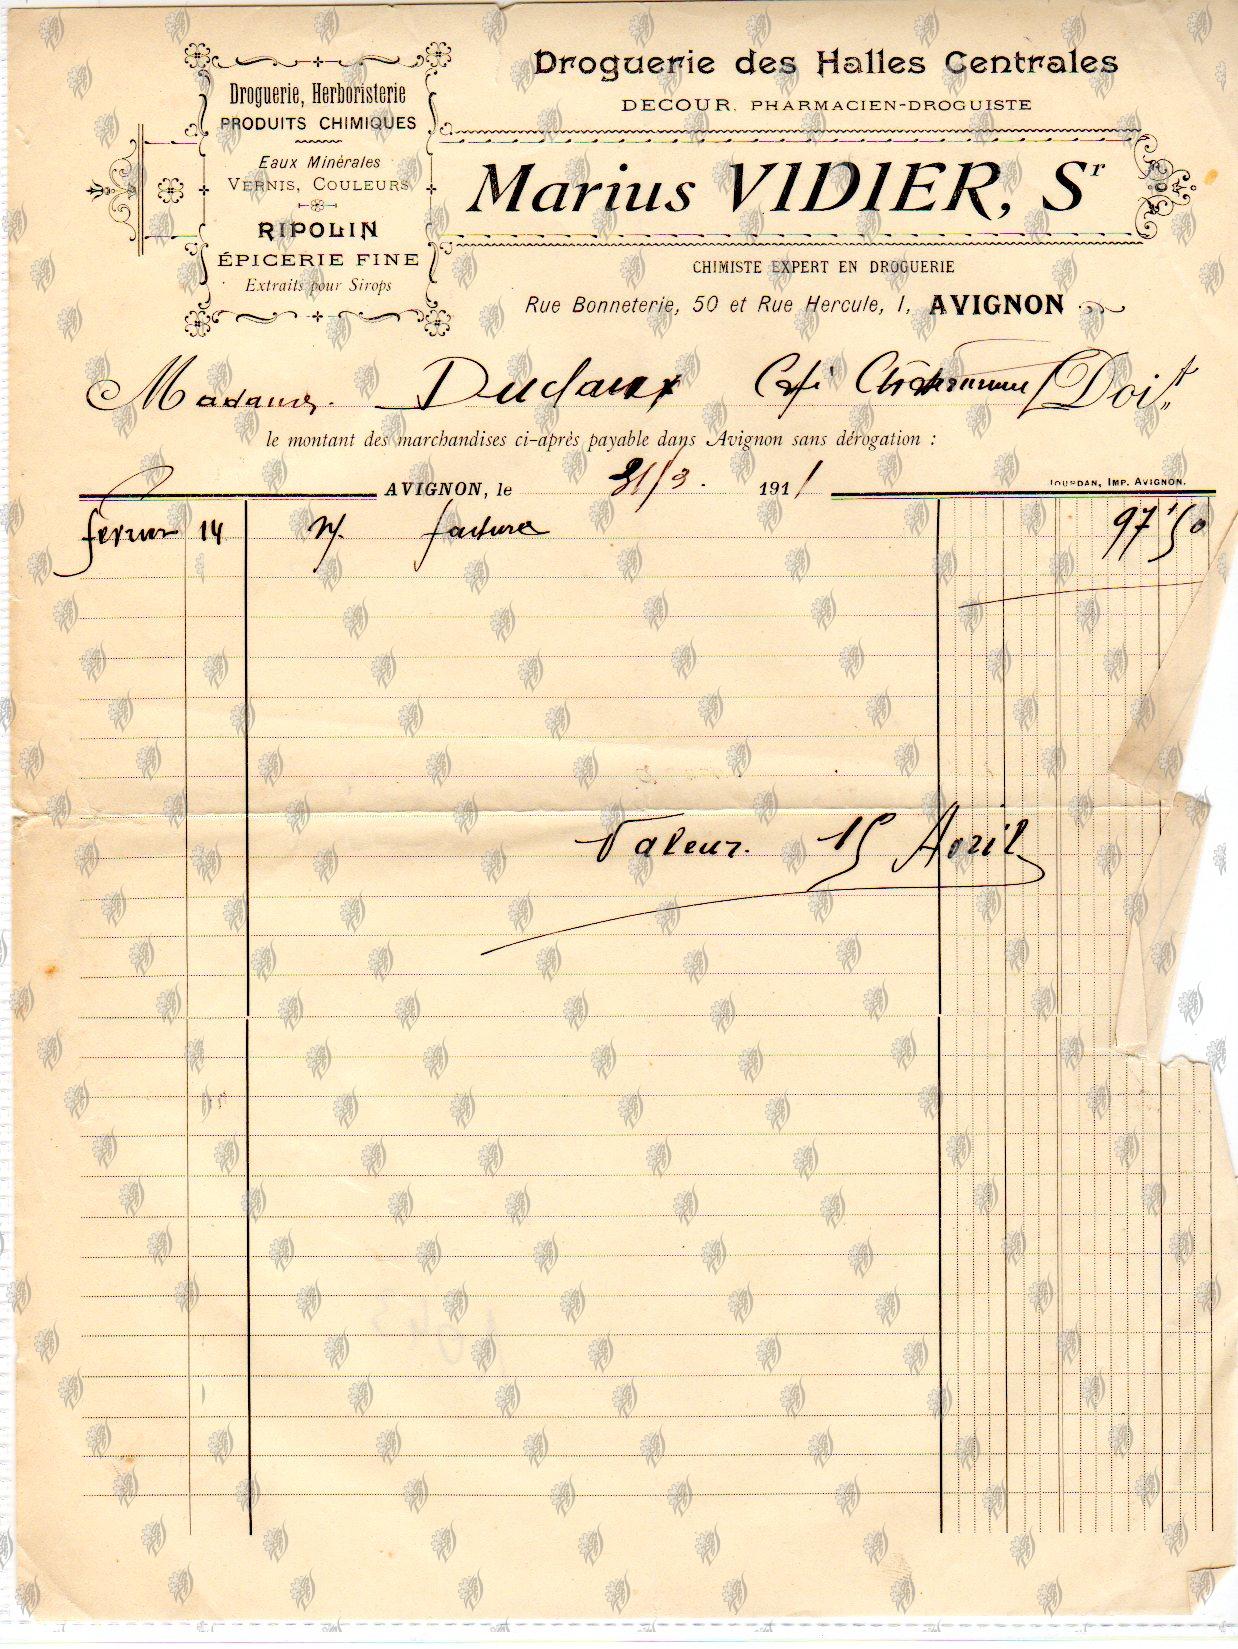 Droguerie, Herboristerie
PRODUITS CHIMIQUES
Eaux Minérales
VERNIS, COULEURS
RIPOLIN
ÉPICERIE FINE
Extraits pour Sirops
Droguerie des Halles Centrales
DECOUR, PHARMACIEN-DROGUISTE
Marius VIDIER, Sr
CHIMISTE EXPERT EN DROGUERIE
Rue Bonneterie, 50 et Rue Hercule, 1, AVIGNON
Madame Duclaux Café Doit
le montant des marchandises ci-après payable dans Avignon sans dérogation :
AVIGNON, le 31/3. 1911
JOURDAN, IMP. AVIGNON.
février 14 N/. facture 97'50
Valeur. 15 Avril